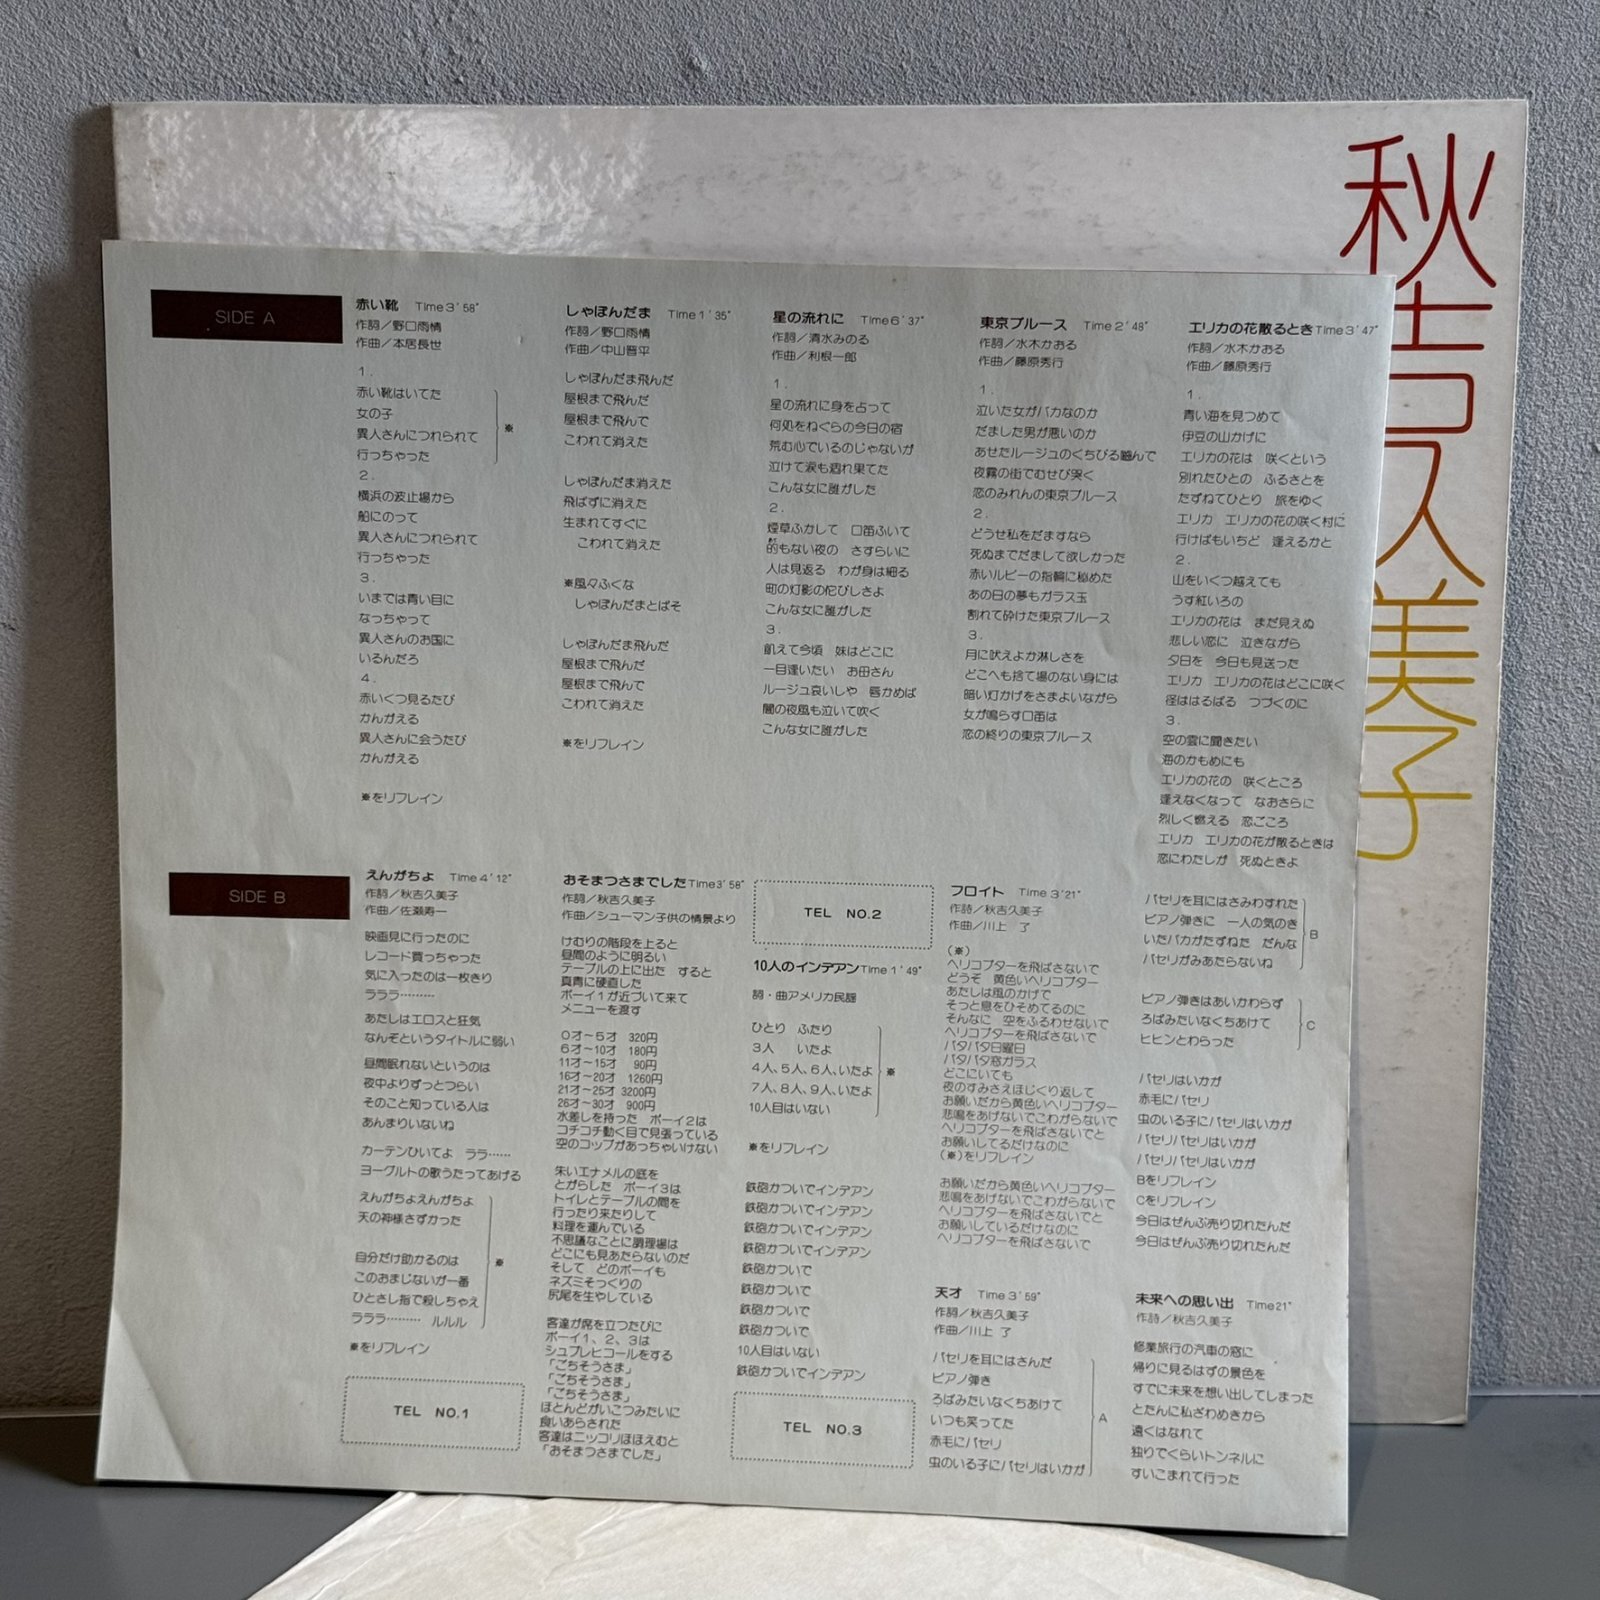 秋吉久美子
SIDE A
赤い靴 Time 3'58"
作詞／野口雨情
作曲／本居長世
1.
赤い靴はいてた
女の子
異人さんにつれられて
行っちゃった
※
2.
横浜の波止場から
船にのって
異人さんにつれられて
行っちゃった
3.
いまでは青い目に
なっちゃって
異人さんのお国に
いるんだろ
4.
赤いくつ見るたび
かんがえる
異人さんに会うたび
かんがえる
※をリフレイン
しゃぼんだま Time 1'35"
作詞／野口雨情
作曲／中山晋平
しゃぼんだま飛んだ
屋根まで飛んだ
屋根まで飛んで
こわれて消えた
しゃぼんだま消えた
飛ばずに消えた
生まれてすぐに
こわれて消えた
※風々ふくな
しゃぼんだまとばそ
しゃぼんだま飛んだ
屋根まで飛んだ
屋根まで飛んで
こわれて消えた
※をリフレイン
星の流れに Time 6'37"
作詞／清水みのる
作曲／利根一郎
1.
星の流れに身を占って
何処をねぐらの今日の宿
荒む心でいるのじゃないが
泣けて涙も涸れ果てた
こんな女に誰がした
2.
煙草ふかして 口笛ふいて
的もない夜の さすらいに
人は見返る わが身は細る
町の灯影の佗びしさよ
こんな女に誰がした
3.
飢えて今頃 妹はどこに
一目逢いたい お母さん
ルージュ哀しや 唇かめば
闇の夜風も泣いて吹く
こんな女に誰がした
東京ブルース Time 2'48"
作詞／水木かおる
作曲／藤原秀行
1.
泣いた女がバカなのか
だました男が悪いのか
あせたルージュのくちびる噛んで
夜霧の街でむせび哭く
恋のみれんの東京ブルース
2.
どうせ私をだますなら
死ぬまでだまして欲しかった
赤いルビーの指輪に秘めた
あの日の夢もガラス玉
割れて砕けた東京ブルース
3.
月に吠えよか淋しさを
どこへも捨て場のない身には
暗い灯かげをさまよいながら
女が鳴らす口笛は
恋の終りの東京ブルース
エリカの花散るとき Time 3'47"
作詞／水木かおる
作曲／藤原秀行
1.
青い海を見つめて
伊豆の山かげに
エリカの花は 咲くという
別れたひとの ふるさとを
たずねてひとり 旅をゆく
エリカ エリカの花の咲く村に
行けばもいちど 逢えるかと
2.
山をいくつ越えても
うす紅いろの
エリカの花は まだ見えぬ
悲しい恋に 泣きながら
夕日を 今日も見送った
エリカ エリカの花はどこに咲く
径ははるばる つづくのに
3.
空の雲に聞きたい
海のかもめにも
エリカの花の 咲くところ
逢えなくなって なおさらに
烈しく燃える 恋ごころ
エリカ エリカの花が散るときは
恋にわたしが 死ぬときよ
SIDE B
えんがちょ Time 4'12"
作詞／秋吉久美子
作曲／佐瀬寿一
映画見に行ったのに
レコード買っちゃった
気に入ったのは一枚きり
ラララ………
あたしはエロスと狂気
なんぞというタイトルに弱い
昼間眠れないというのは
夜中よりずっとつらい
そのこと知っている人は
あんまりいないね
カーテンひいてよ ララ……
ヨーグルトの歌うたってあげる
えんがちょえんがちょ
天の神様さずかった
自分だけ助かるのは
このおまじないが一番
ひとさし指で殺しちゃえ
ラララ……… ルルル
※
※をリフレイン
TEL NO.1
おそまつさまでした Time 3'58"
作詞／秋吉久美子
作曲／シューマン子供の情景より
けむりの階段を上ると
昼間のように明るい
テーブルの上に出た すると
真青に硬直した
ボーイ1が近づいて来て
メニューを渡す
0才～5才 320円
6才～10才 180円
11才～15才 90円
16才～20才 1260円
21才～25才 3200円
26才～30才 900円
水差しを持った ボーイ2は
コチコチ動く目で見張っている
空のコップがあっちゃいけない
朱いエナメルの庭を
とがらした ボーイ3は
トイレとテーブルの間を
行ったり来たりして
料理を運んでいる
不思議なことに調理場は
どこにも見あたらないのだ
そして どのボーイも
ネズミそっくりの
尻尾を生やしている
客達が席を立つたびに
ボーイ1、2、3は
シュプレヒコールをする
「ごちそうさま」
「ごちそうさま」
「ごちそうさま」
ほとんどがいこつみたいに
食いあらされた
客達はニッコリほほえむと
「おそまつさまでした」
TEL NO.2
10人のインデアン Time 1'49"
詞・曲アメリカ民謡
ひとり ふたり
3人 いたよ
4人、5人、6人、いたよ
7人、8人、9人、いたよ
10人目はいない
※
※をリフレイン
鉄砲かついでインデアン
鉄砲かついでインデアン
鉄砲かついでインデアン
鉄砲かついでインデアン
鉄砲かついで
鉄砲かついで
鉄砲かついで
鉄砲かついで
10人目はいない
鉄砲かついでインデアン
TEL NO.3
フロイト Time 3'21"
作詩／秋吉久美子
作曲／川上 了
(※)
ヘリコプターを飛ばさないで
どうぞ 黄色いヘリコプター
あたしは風のかげで
そっと息をひそめてるのに
そんなに 空をふるわせないで
ヘリコプターを飛ばさないで
バタバタ日曜日
バタバタ窓ガラス
どこにいても
夜のすみさえほじくり返して
お願いだから黄色いヘリコプター
悲鳴をあげないでこわがらないで
ヘリコプターを飛ばさないでと
お願いしてるだけなのに
(※)をリフレイン
お願いだから黄色いヘリコプター
悲鳴をあげないでこわがらないで
ヘリコプターを飛ばさないでと
お願いしているだけなのに
ヘリコプターを飛ばさないで
天才 Time 3'59"
作詞／秋吉久美子
作曲／川上 了
パセリを耳にはさんだ
ピアノ弾き
ろばみたいなくちあけて
いつも笑ってた
赤毛にパセリ
虫のいる子にパセリはいかが
A
パセリを耳にはさみわすれた
ピアノ弾きに 一人の気のきき
いたバカがたずねた だんな
パセリがみあたらないね
B
ピアノ弾きはあいかわらず
ろばみたいなくちあけて
ヒヒンとわらった
C
パセリはいかが
赤毛にパセリ
虫のいる子にパセリはいかが
パセリパセリはいかが
パセリパセリはいかが
Bをリフレイン
Cをリフレイン
今日はぜんぶ売り切れたんだ
今日はぜんぶ売り切れたんだ
未来への思い出 Time 21"
作詩／秋吉久美子
修業旅行の汽車の窓に
帰りに見るはずの景色を
すでに未来を想い出してしまった
とたんに私ざわめきから
遠くはなれて
独りでくらいトンネルに
すいこまれて行った